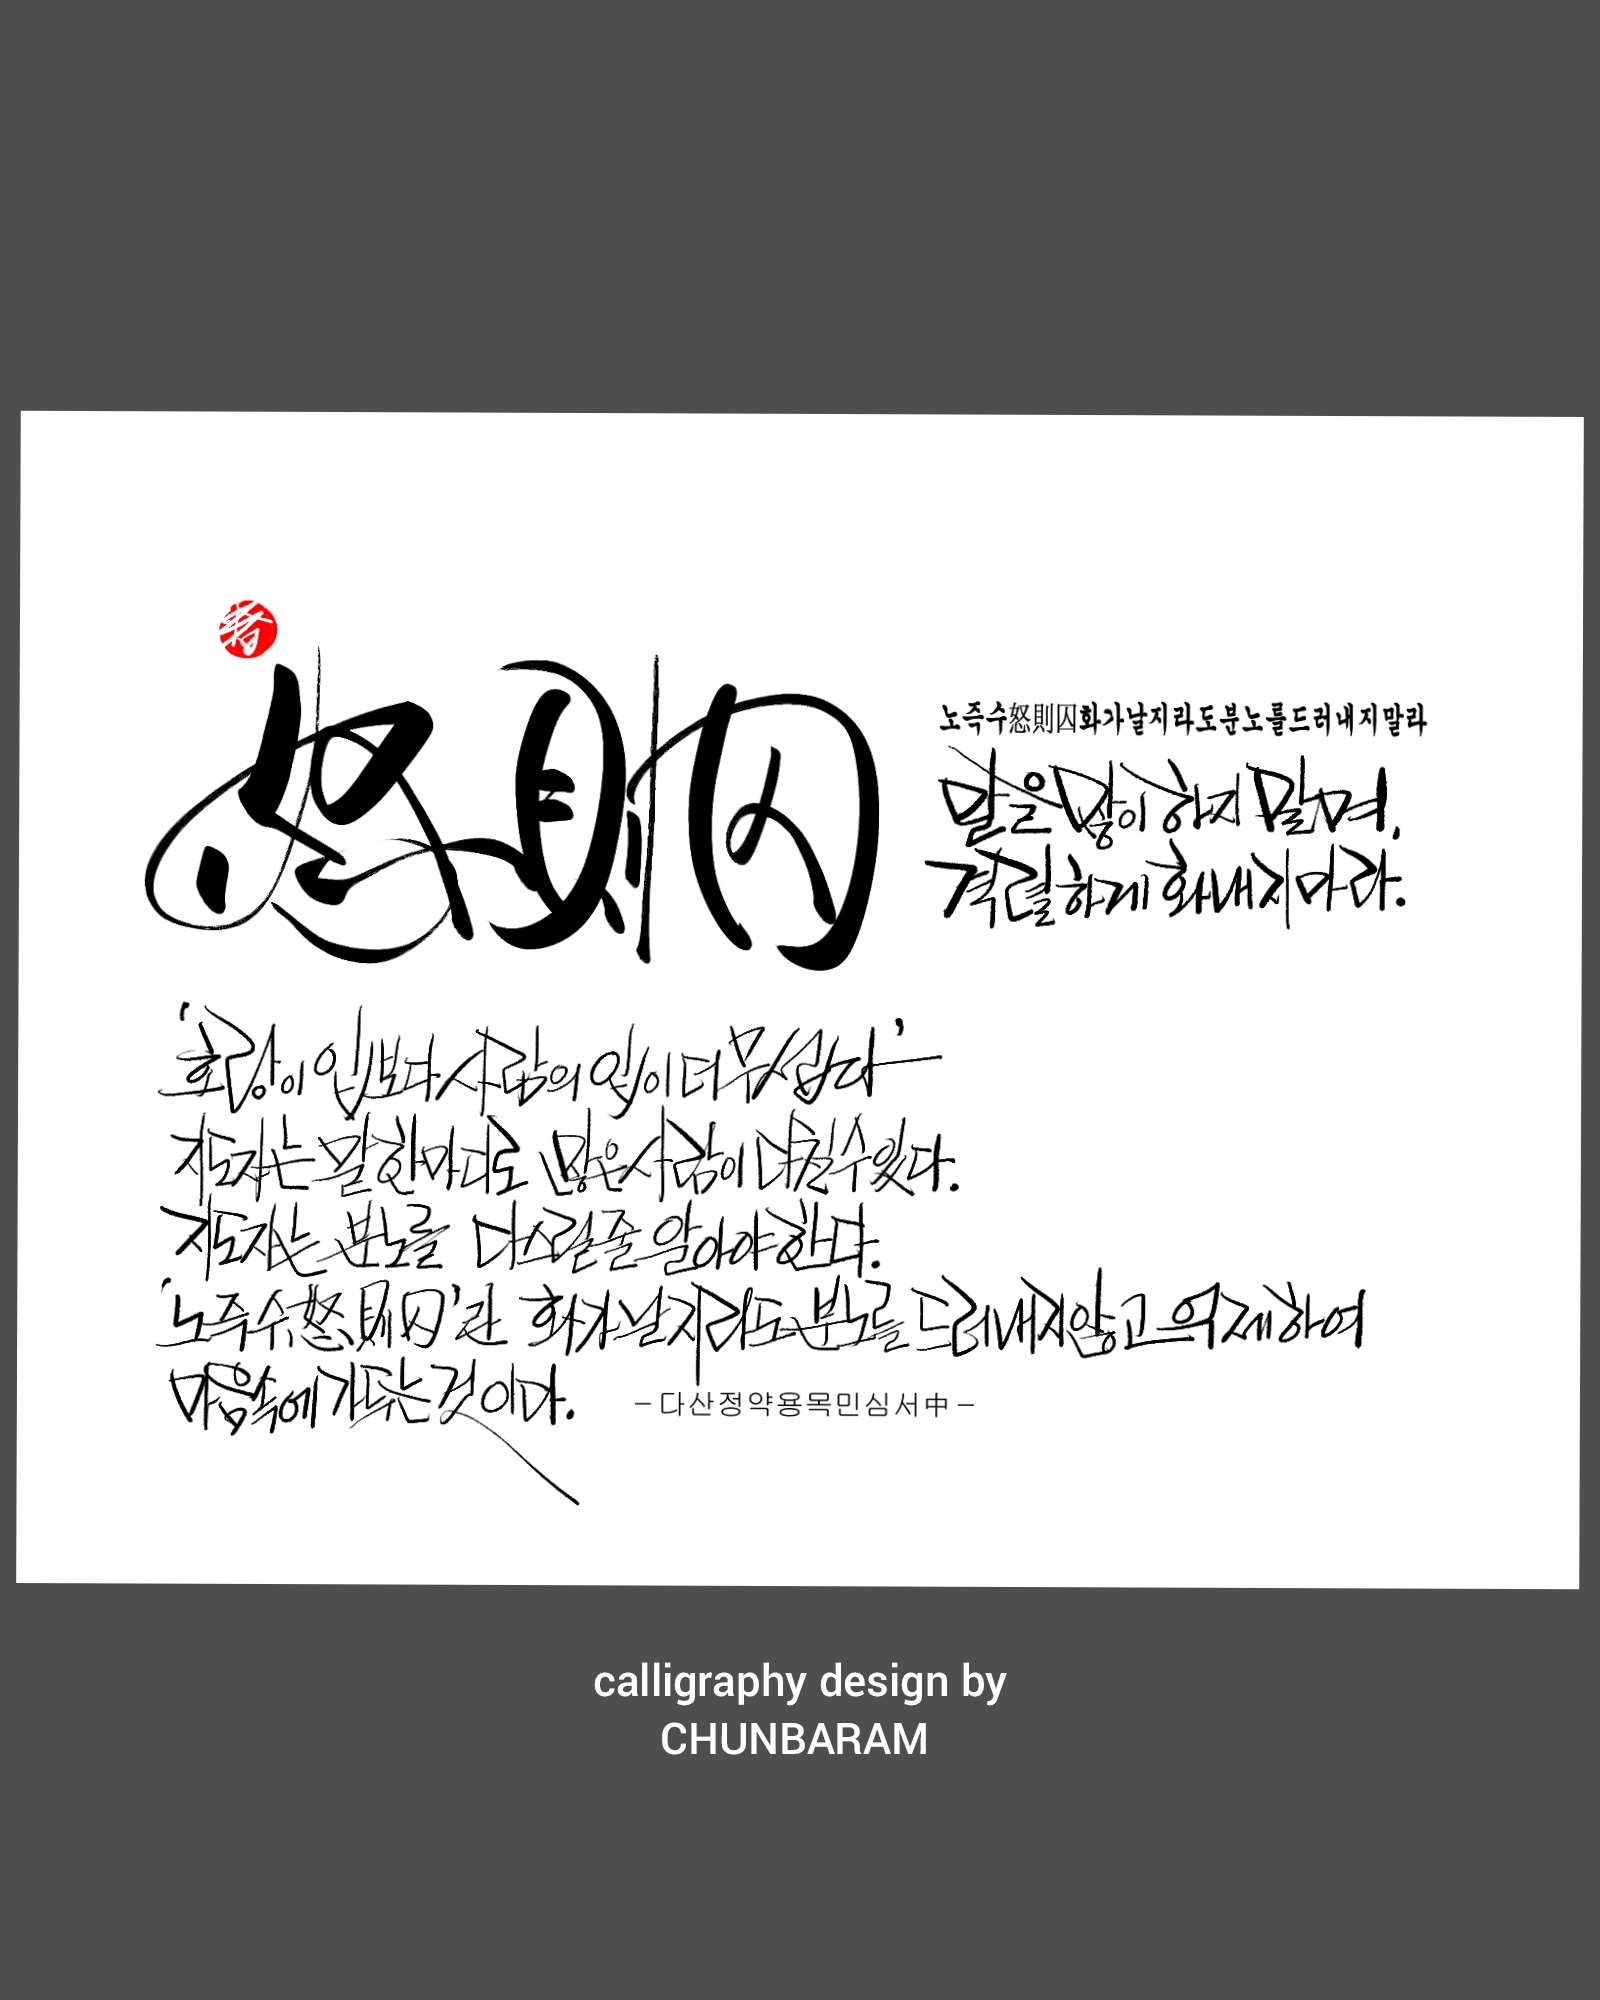 怒則囚
노즉수怒則囚화가날지라도분노를드러내지말라
말을 많이 하지 말며,
격렬하게 화내지 마라.
'호랑이 입보다 사람의 입이 더 무섭다'
지도자는 말 한마디로 많은 사람이 다칠 수 있다.
지도자는 분노를 다스릴 줄 알아야 한다.
'노즉수怒則囚'란 화가 날지라도 분노를 드러내지 않고 억제하여
마음속에 가두는 것이다.
-다산정약용목민심서中-
calligraphy design by
CHUNBARAM